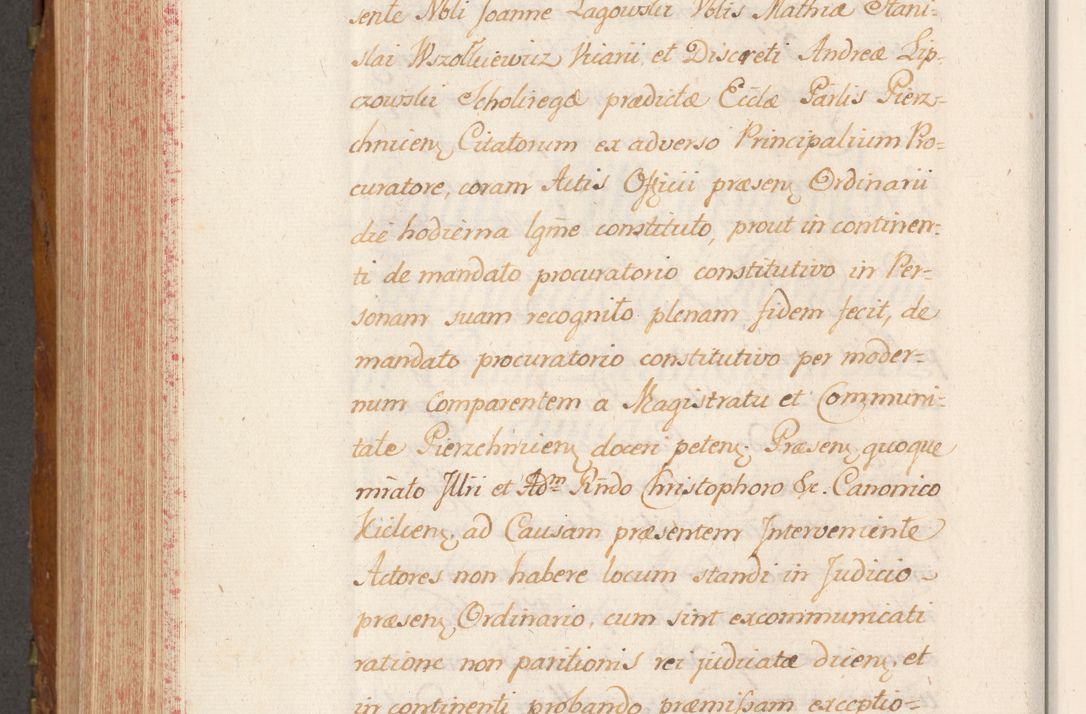 sente Nbli Joanne Lagowski Vblis Mathiæ Stani-
slai Wszołkiewicz Vicarii, et Discreti Andreæ Lip-
czowski Scholiregæ prædictæ Ecclæ Parlis Pierz-
chnicens Citatorum ex adverso Principalium Pro-
curatore, coram Actis Officii præsens Ordinarii
die hodierna lgme constituto, prout in continen-
ti de mandato procuratorio constitutivo in Per-
sonam suam recognito plenam fidem fecit, de
mandato procuratorio constitutivo per moder-
num Comparentem a Magistratu et Communi-
tate Pierzchnicens doceri petens. Præsens quoque
miato Illri et Adm Rndo Christophoro &c. Canonico
Kielcens. ad Causam præsentem Interveniente
Actores non habere locum standi in Judicio
præsens Ordinario, cum sint excommunicati
ratione non paritionis rei judicatæ dicens, et
in continenti probando præmissam exceptio-